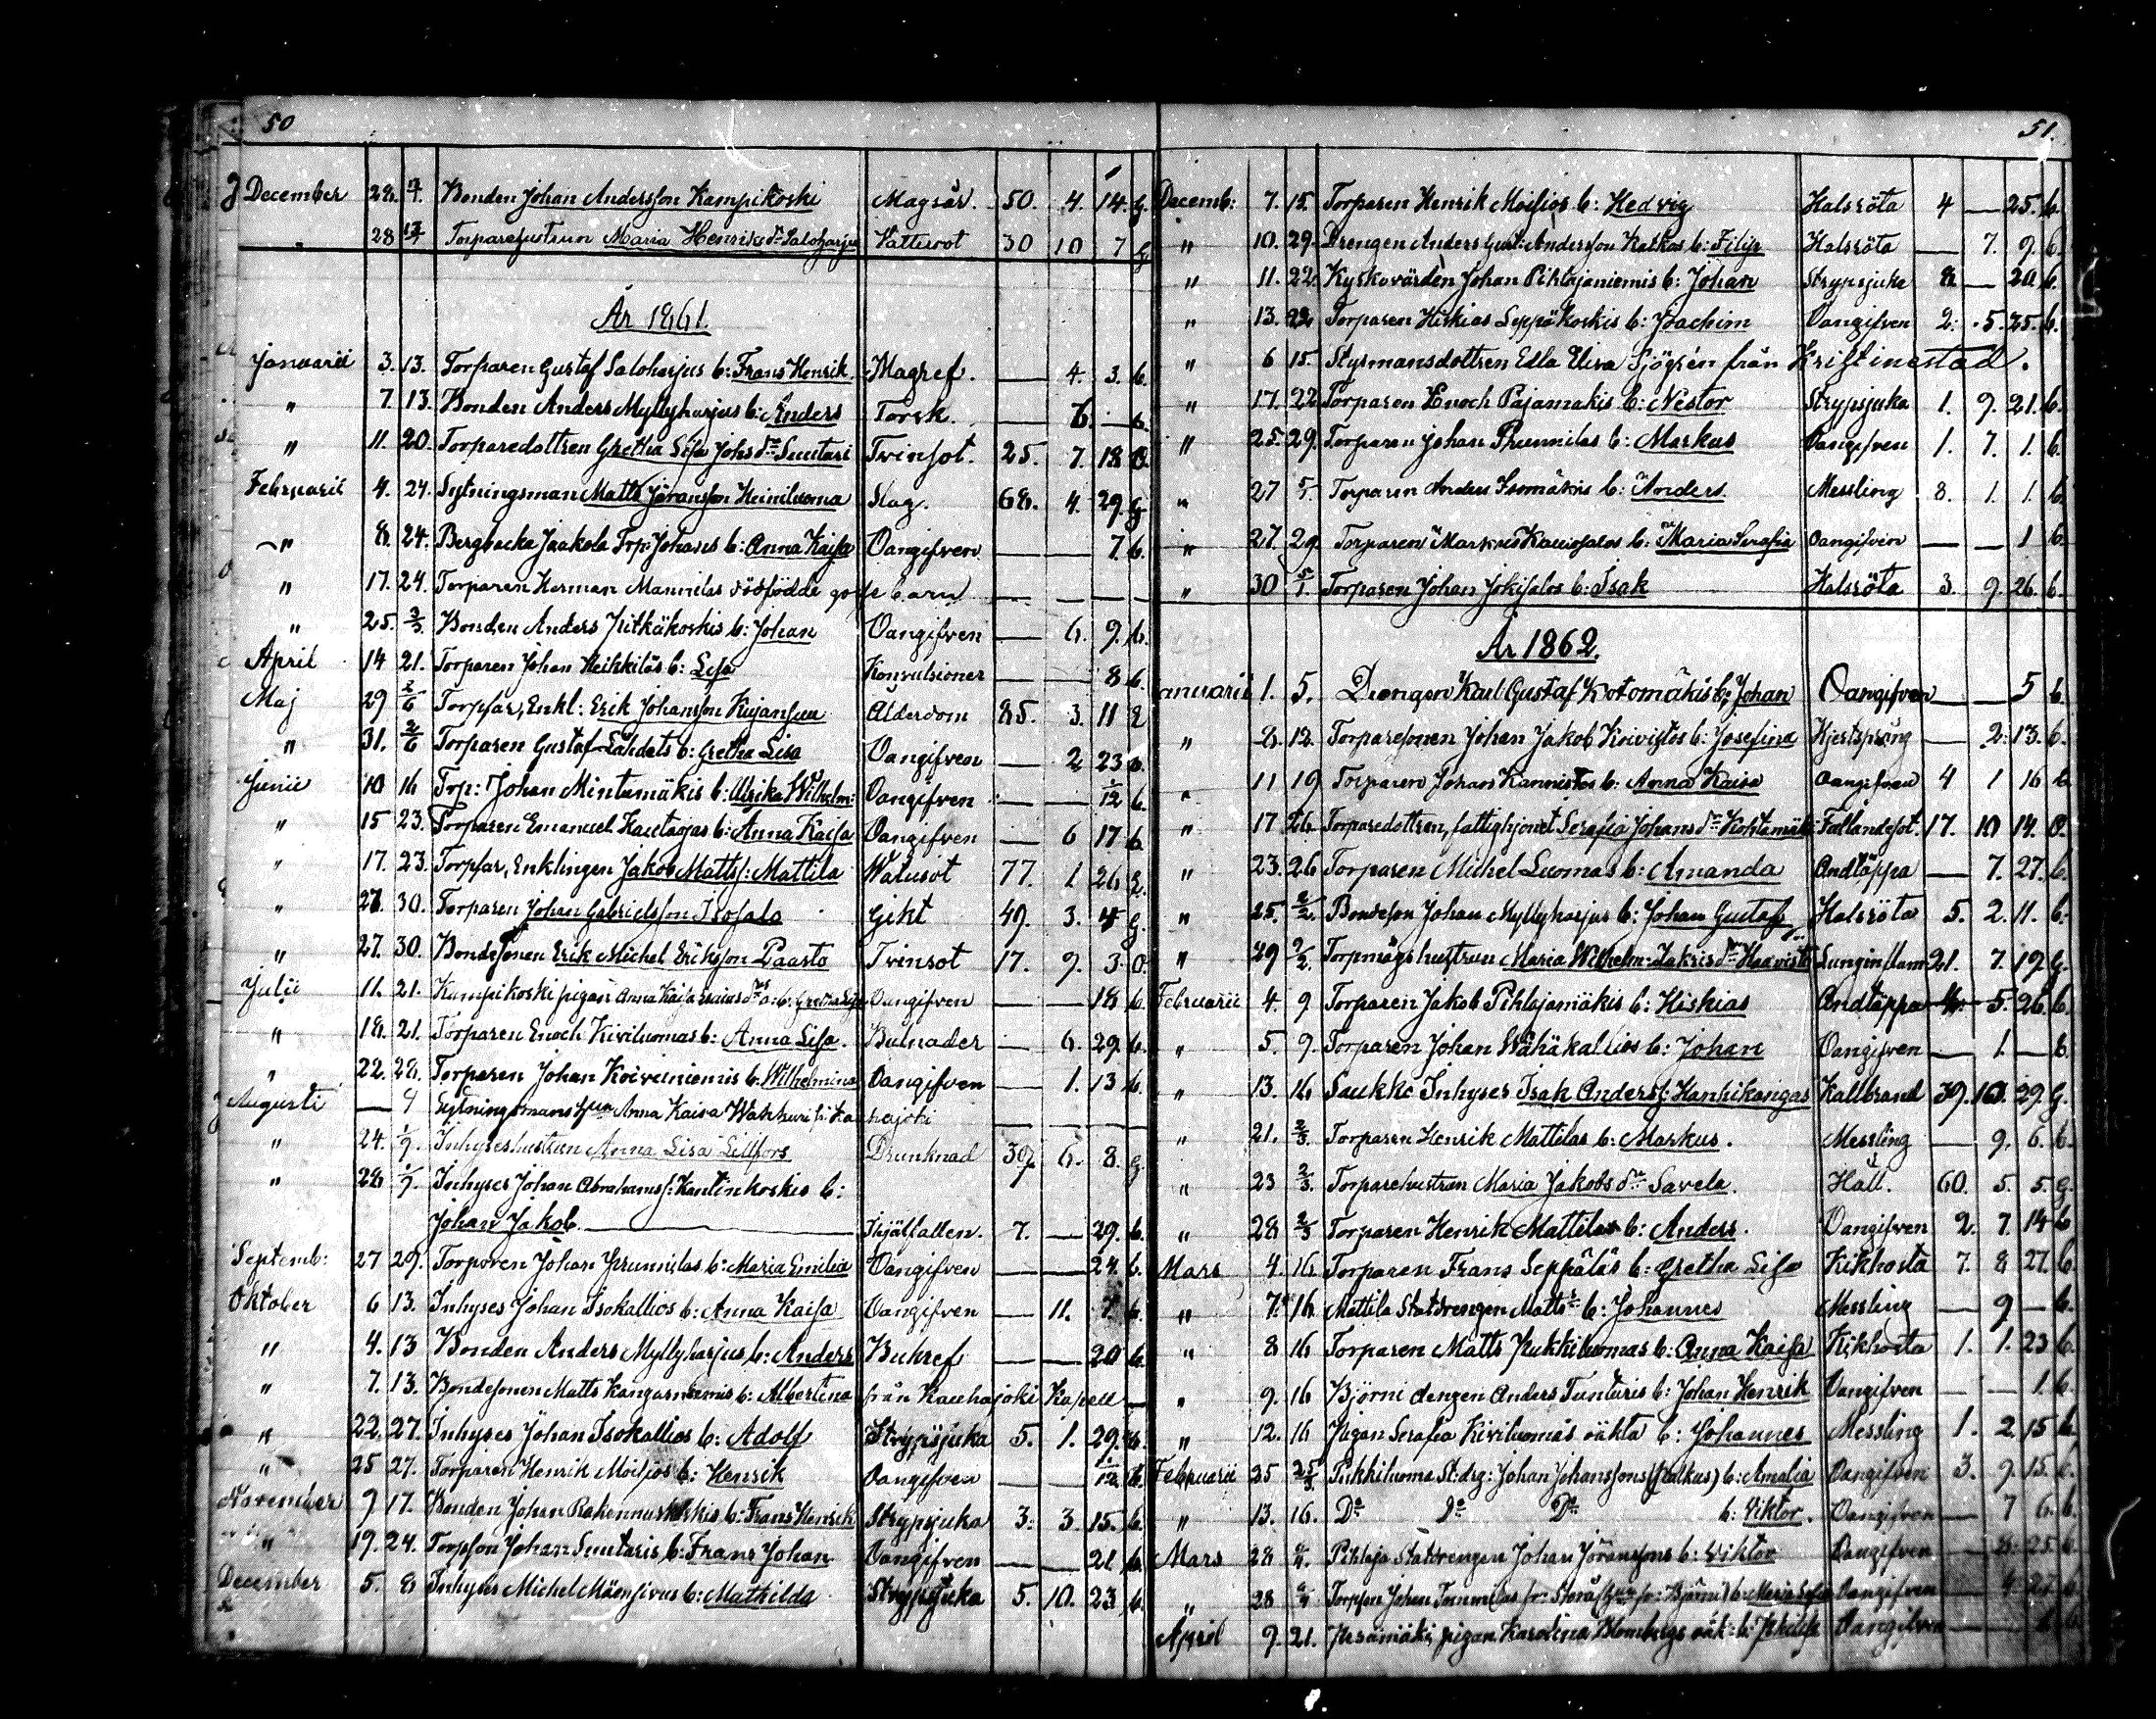 50
December 28. Bonden Johan Andersson Kampikoski Magsår. 50. 4. 14. g.
" 28 Torparehustrun Maria Henriksdr Saloharju Vattsoot 30 10 7 g
År 1861.
Januarii 3. 13. Torparen Gustaf Saloharjus b: Frans Henrik. Magref. — 4. 3. b.
" 7. 13. Bonden Anders Myllyharjus b: Anders Torsk. — 6. — b.
" 11. 20. Torparedottren Gretha Lisa Johsdr Suutari Tvinsot. 25. 7. 18 O.
Februarii 4. 24. Sytningsman Matts Jöransson Heiniluoma Slag. 68. 4. 29. g.
" 8. 24. Bergbacka Jaakola Trp: Johans b: Anna Kaisa Oangifven — — 7 b.
" 17. 24. Torparen Herman Mannilas dödfödde gosse barn — — — —
" 25. 3/3. Bonden Anders Pitkäkoskis b: Johan Oangifven — 6. 9. b.
April 14 21. Torparen Johan Heikkiläs b: Lisa Konvulsioner — — 8 b.
Maj 29 2/6 Torpfar, Enkl: Erik Johansson Kujansuu Ålderdom 85. 3. 11 E
" 31. 2/6 Torparen Gustaf Lahdets b: Gretha Lisa Oangifven — 2 23 b.
Junii 10 16 Trp: Johan Mintumäkis b: Ulrika Wilhelm: Oangifven — — 1/12 b.
" 15 23. Torparen Emanuel Kautaojas b: Anna Kaisa Oangifven — 6 17 b.
" 17. 23. Torpfar, Enklingen Jakob Matts s: Mattila Watusot 77. 1 26 E.
" 27. 30. Torparen Johan Gabrielsson Isosalo Gikt 49. 3. 4 g.
" 27. 30. Bondesonen Erik Michel Eriksson Paasto Tvinsot 17. 9. 3. O.
Julii 11. 21. Kampikoski pigan Anna Kaisa b: Gretha Lisa Oangifven — — 18 b.
" 18. 21. Torparen Enoch Kiviluomas b: Anna Lisa. Bulnader — 6. 29. b.
" 22. 28. Torparen Johan Koivuniemis b: Wilhelmina Oangifven — 1. 13 b.
Augusti — 9 Sytningsmans hu Anna Kaisa Wakkuri fr: Kauhajoki
" 24. 1/9. Inhyseshustrun Anna Lisa Lillfors Drunknad 39. 6. 8. g.
" 28 1/9. Inhyses Johan Abrahams s: Kantinkoskis b:
Johan Jakob. — Ihjälfallen. 7. — 29. b.
Septemb: 27 29. Torparen Johan Prunnilas b: Maria Emilia Oangifven — — 24 b.
Oktober 6 13. Inhyses Johan Isokallios b: Anna Kaisa Oangifven — 11. 7. b.
" 4. 13 Bonden Anders Myllyharjus b: Anders Bukref — — 20 b.
" 7. 13. Bondesonen Matts Kangasniemis b: Albertina från Kauhajoki Kapell —
" 22. 27. Inhyses Johan Isokallios b: Adolf Strypsjuka 5. 1. 29. b.
" 25 27. Torparen Henrik Moisios b: Henrik Oangifven — — 1/12 b.
November 9 17. Bonden Johan Rakennuskoskis b: Frans Henrik Strypsjuka 3. 3 15. b.
" 19. 24. Torpson Johan Suutaris b: Frans Johan Oangifven — — 21 b.
December 5. 8 Inhyses Michel Mäensivus b: Mathilda Strypsjuka 5. 10. 23 b.
51.
Decemb: 7. 15. Torparen Henrik Moisios b: Hedvig Halsröta 4 — 25. b.
" 10. 29. Drengen Anders Gust: Andersson Katkas b: Filip Halsröta — 7. 9. b.
" 11. 22. Kyrkovärden Johan Pihlajaniemis b: Johan Strypsjuka 8 — 20 b.
" 13. 22 Torparen Hiskias Seppäkoskis b: Joachim Oangifven 2. 5. 25. b.
" 6 15. Styrmansdottren Edla Elisa Sjögrén från Kristinestad.
" 17. 22 Torparen Enoch Pajamäkis b: Nestor Strypsjuka 1. 9. 21. b.
" 25. 29. Torparen Johan Prunnilas b: Markus Oangifven 1. 7. 1. b.
" 27 Torparen Anders Isomäkis b: Anders Messling 8. 1. 1. b.
" 27. 29 Torparen Markus Kauosalos b: Maria Serafia Oangifven — — 1 b.
" 30 5/1. Torparen Johan Jokisalos b: Isak Halsröta 3. 9. 26. b.
År 1862.
Januarii 1. 5. Drengen Karl Gustaf Kotomäkis b: Johan Oangifven — — 5 b.
" 8. 12. Torparesonen Johan Jakob Koivistos b: Josefina Hjertsprång — 2. 13. b.
" 11 19 Torparen Johan Kannistos b: Anna Kaisa Oangifven 4 1 16 b
" 17 26 Torparedottren, fattighjonet Serafia Johansdr Kohtamäki Fallandesot. 17. 10 14. O.
" 23. 26 Torparen Michel Luomas b: Amanda Andtäppa — 7. 27. b.
" 25. 2/2. Bondeson Johan Myllyharjus b: Johan Gustaf Halsröta 5. 2. 11. b.
" 29 2/2. Torpmågs hustrun Maria Wilhelm: Zakrisdr Haavisto Lunginflam 21. 7. 19. g.
Februarii 4. 9. Torparen Jakob Pihlajamäkis b: Hiskias Andtäppa 4. 5. 26. b.
" 5. 9. Torparen Johan Wähäkallios b: Johan Oangifven — 1. — b.
" 13. 16 Saukko Inhyses Isak Anders s: Hanhikangas Kallbrand 39. 10. 29. g.
" 21. 2/3. Torparen Henrik Mattilas b: Markus. Messling — 9. 6. b.
" 23 2/3. Torparehustrun Maria Jakobsdr Savela. Håll. 60. 5. 5. g.
" 28 2/3 Torparen Henrik Mattilas b: Anders. Oangifven 2. 7. 14 b
Mars 4. 16. Torparen Frans Seppäläs b: Gretha Lisa Kikhosta 7. 8 27. b.
" 7. 16 Mattila Statdrengen Matts b: Johannes Messling — 9 — b.
" 8 16 Torparen Matts Pukkiluomas b: Anna Kaisa Kikhosta 1. 1. 23 b.
" 9. 16 Björni dengen Anders Tunturis b: Johan Henrik Oangifven — — 1. b.
" 12. 16 Pigan Serafia Kiviluomas oäkta b: Johannes Messling 1. 2 15 b.
Februarii 25 25/3. Pukkiluoma St:drg: Johan Johanssons (Palkus) b: Amalia Oangifven 3. 9. 15. b.
" 13. 16. Do Do Do b: Viktor. Oangifven — 7 6. b.
Mars 28 Pihlaja Statdrengen Johan Jöranssons b: Viktor Oangifven — 8. 25 b.
" 28 Torpson Johan b: Maria Oangifven —
April 9. 21. pigan Karolina Blombergs oäk: b: Oangifven —